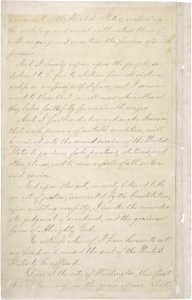 ernment of the United States, including
the military and naval authority thereof,
will recognize and maintain the freedom of said
persons.
And I hereby enjoin upon the people so
declared to be free to abstain from all violence,
unless in necessary self-defence; and I recom-
mend to them that, in all cases when allowed,
they labor faithfully for reasonable wages.
And I further declare and make known,
that such persons of suitable condition, will
be received into the armed service of the United
States to garrison forts, positions, stations, and
other places, and to man vessels of all sorts in
said service.
And upon this act, sincerely believed to be
an act of justice, warranted by the Constitution,
upon military necessity, I invoke the considerate
judgment of mankind, and the gracious
favor of Almighty God.
In witness whereof, I have hereunto set
my hand and caused the seal of the United
States to be affixed.
Done at the City of Washington, this first
day of January, in the year of our Lord